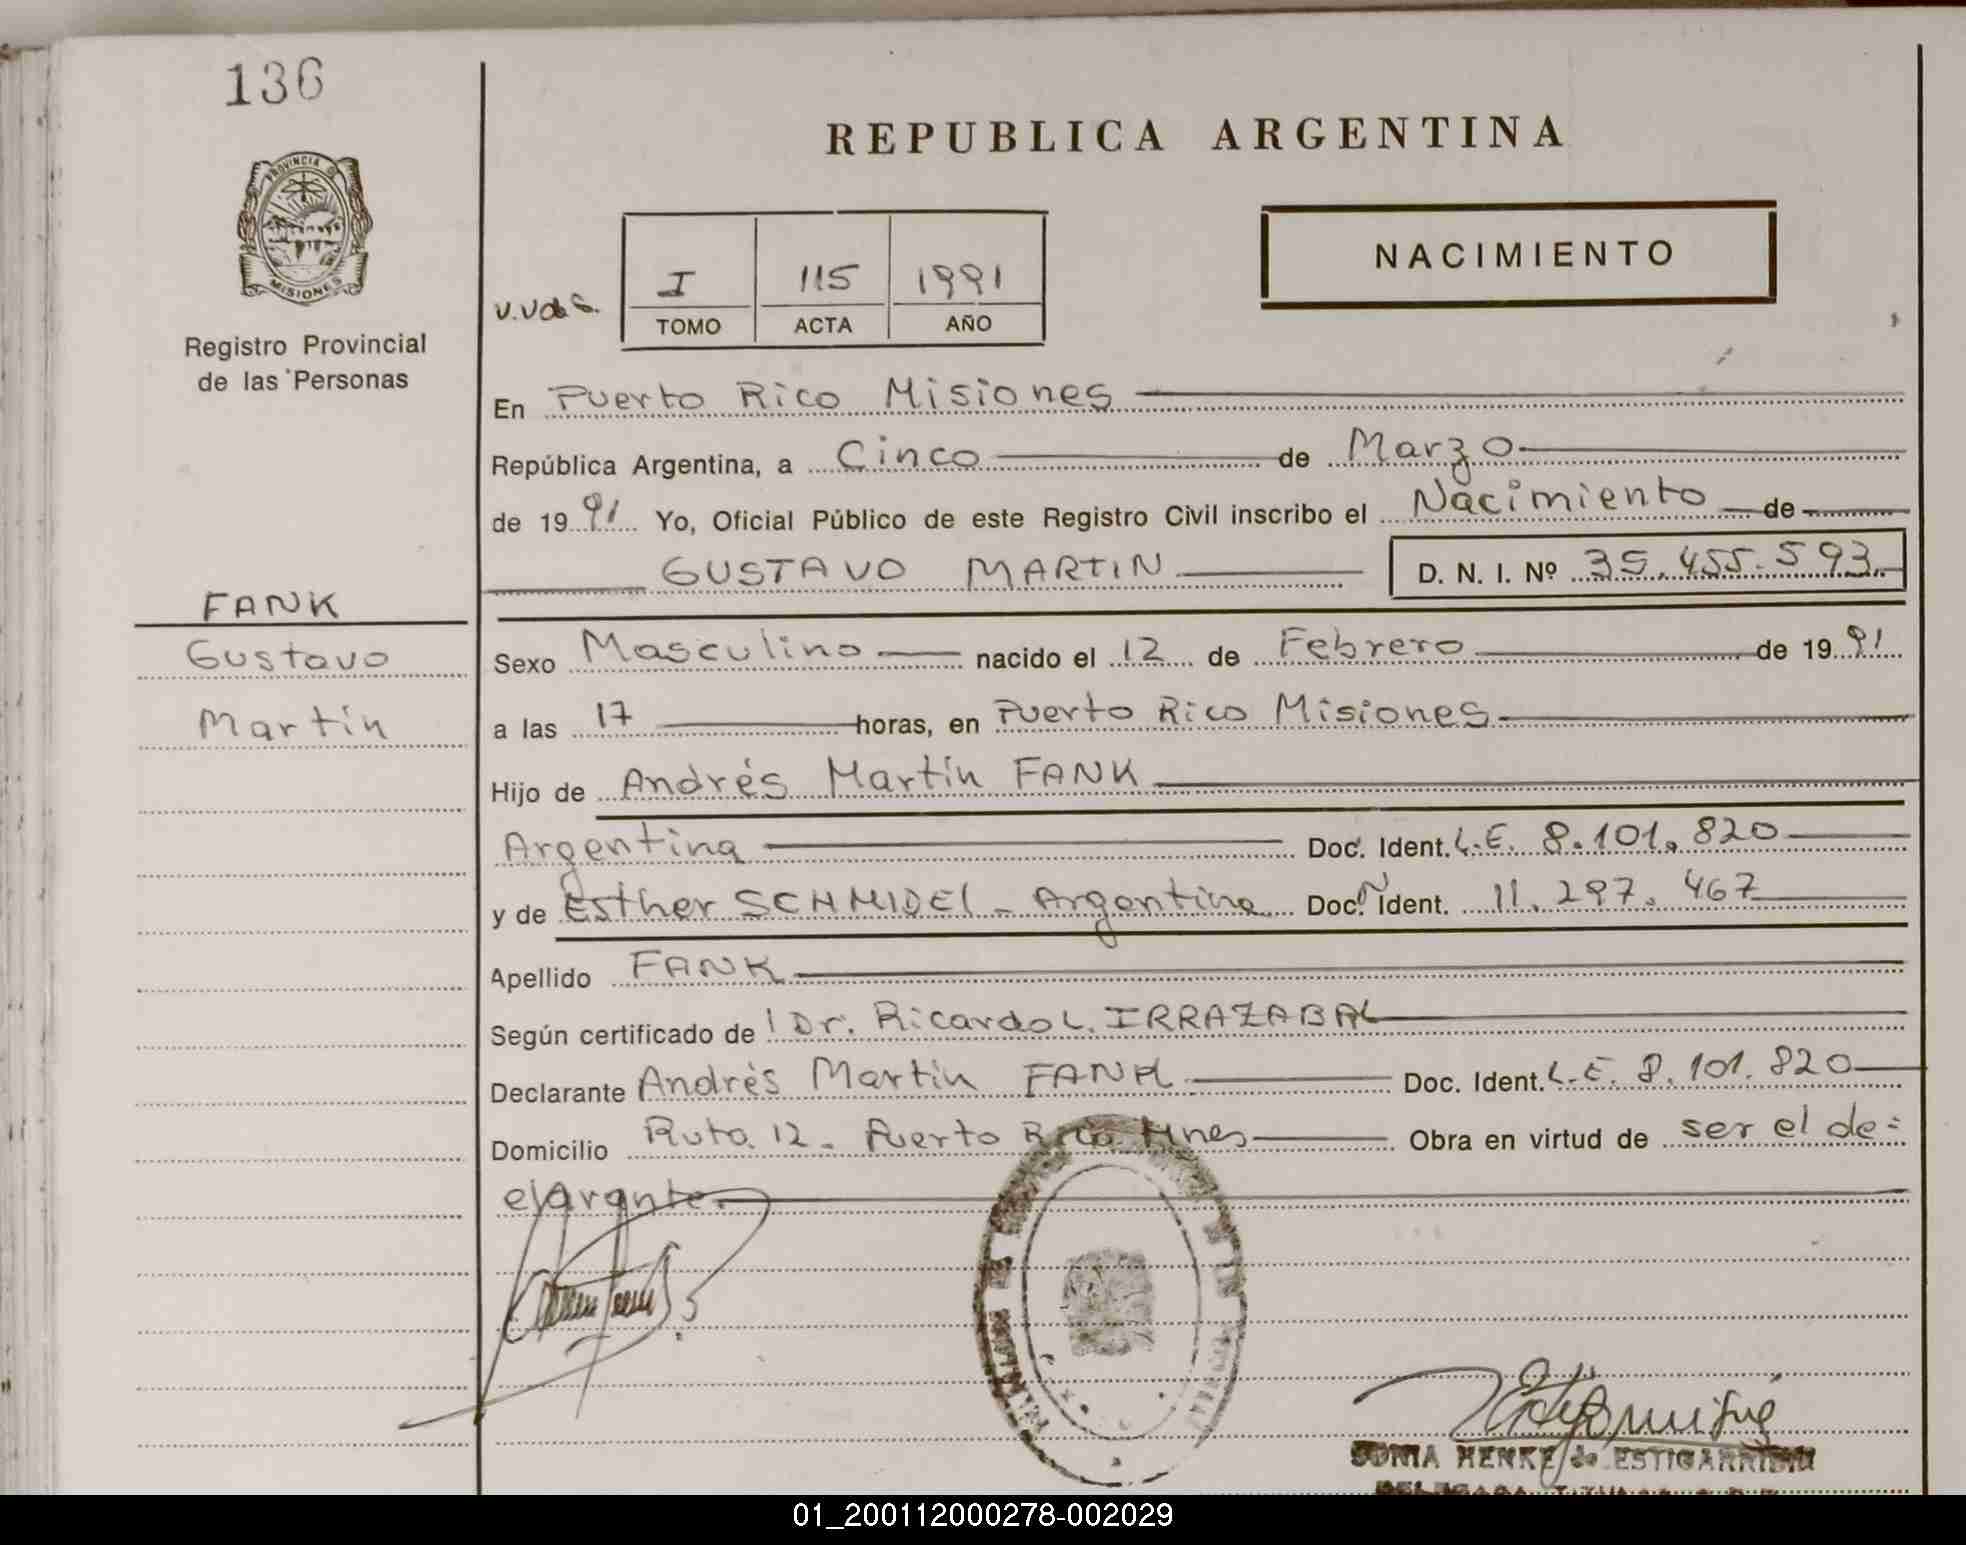 136
REPUBLICA ARGENTINA
PROVINCIA DE
MISIONES
Registro Provincial
de las Personas
I 115 1991
TOMO ACTA AÑO
NACIMIENTO
En Puerto Rico Misiones
República Argentina, a Cinco de Marzo
de 1991 Yo, Oficial Público de este Registro Civil inscribo el Nacimiento de
GUSTAVO MARTIN D. N. I. Nº 35.455.593
FANK
Gustavo
Martín
Sexo Masculino nacido el 12 de Febrero de 1991
a las 17 horas, en Puerto Rico Misiones
Hijo de Andrés Martín FANK
Argentina Doc. Ident. L.E. 8.101.820
y de Esther SCHMIDEl - Argentina Doc. Ident. 11.297.467
Apellido FANK
Según certificado de Dr. Ricardo L. IRRAZABAL
Declarante Andrés Martín FANK Doc. Ident. L.E. 8.101.820
Domicilio Ruta 12 - Puerto Rico Mnes Obra en virtud de ser el de=
clarante.
SONIA HENKE de ESTIGARRIBIA
01_200112000278-002029